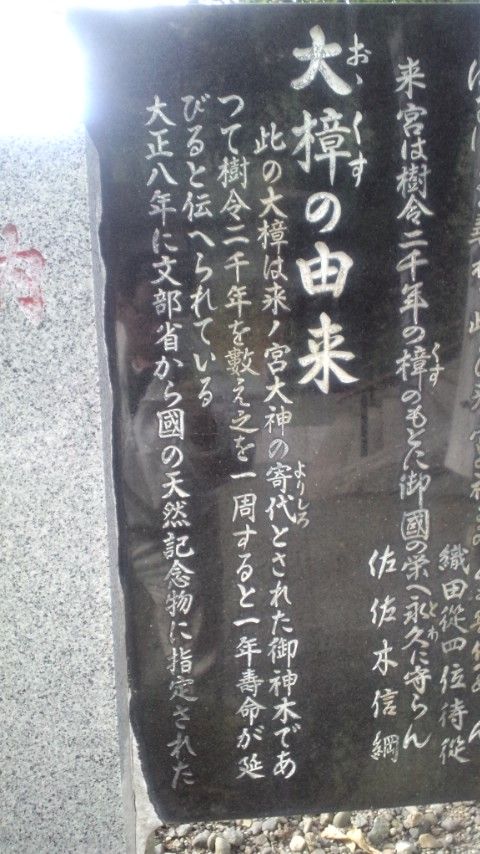 織田從四位待從
来宮は樹令二千年の樟のもとに御國の栄へ永久に守らん
くす
とわ
佐佐木信綱
大樟の由来
おゝくす
此の大樟は来ノ宮大神の寄代とされた御神木であ
よりしろ
つて樹令二千年を數え之を一周すると一年寿命が延
びると伝へられている
大正八年に文部省から國の天然記念物に指定された